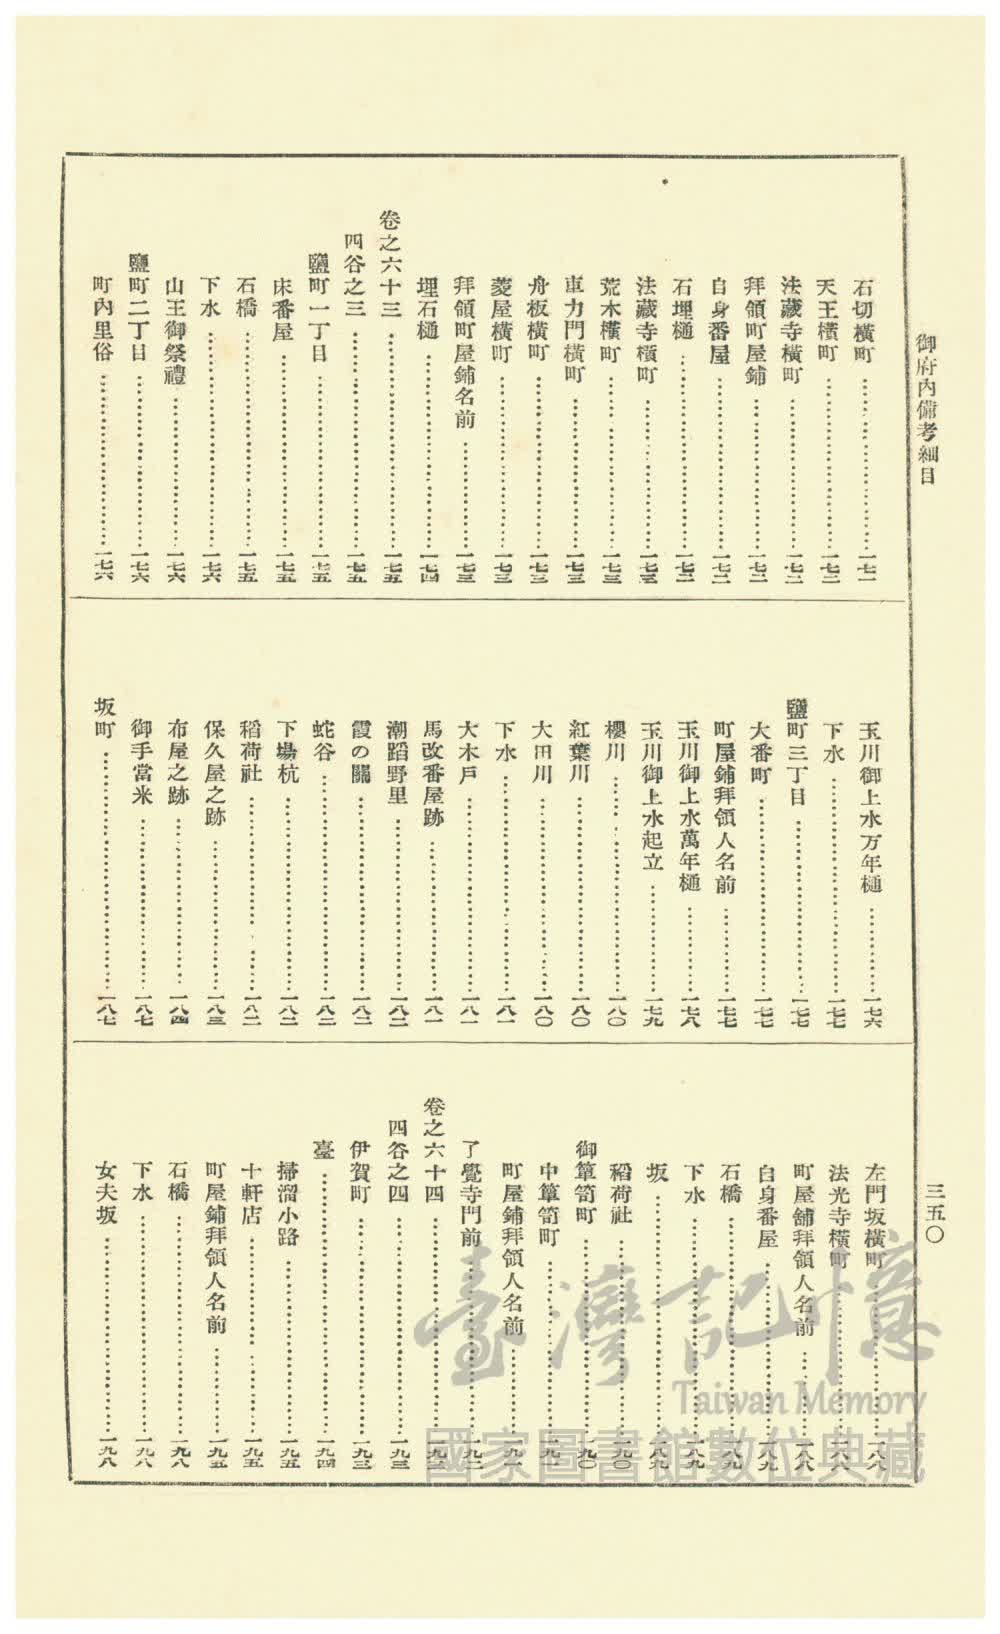 御府內備考細目
三五〇
石切橫町……一七一
天王橫町……一七二
法藏寺橫町……一七二
拜領町屋鋪……一七二
自身番屋……一七二
石埋樋……一七二
法藏寺橫町……一七三
荒木橫町……一七三
車力門橫町……一七三
舟板橫町……一七三
菱屋橫町……一七三
拜領町屋鋪名前……一七三
埋石樋……一七四
卷之六十三……一七五
四谷之三……一七五
鹽町一丁目……一七五
床番屋……一七五
石橋……一七五
下水……一七六
山王御祭禮……一七六
鹽町二丁目……一七六
町內里俗……一七六
玉川御上水万年樋……一七六
下水……一七七
鹽町三丁目……一七七
大番町……一七七
町屋鋪拜領人名前……一七七
玉川御上水萬年樋……一七八
玉川御上水起立……一七九
櫻川……一八〇
紅葉川……一八〇
大田川……一八〇
下水……一八一
大木戶……一八一
馬改番屋跡……一八一
潮蹈野里……一八二
霞の關……一八二
蛇谷……一八二
下場杭……一八二
稻荷社……一八二
保久屋之跡……一八三
布屋之跡……一八四
御手當米……一八七
坂町……一八七
左門坂橫町……一八八
法光寺橫町……一八八
町屋舖拜領人名前……一八八
自身番屋……一八九
石橋……一八九
下水……一八九
坂……一八九
稻荷社……一九〇
御簞笥町……一九〇
中簞笥町……一九一
町屋鋪拜領人名前……一九一
了覺寺門前……一九二
卷之六十四……一九三
四谷之四……一九三
伊賀町……一九三
臺……一九四
掃溜小路……一九五
十軒店……一九五
町屋鋪拜領人名前……一九五
石橋……一九八
下水……一九八
女夫坂……一九八
臺灣記憶
Taiwan Memory
國家圖書館數位典藏